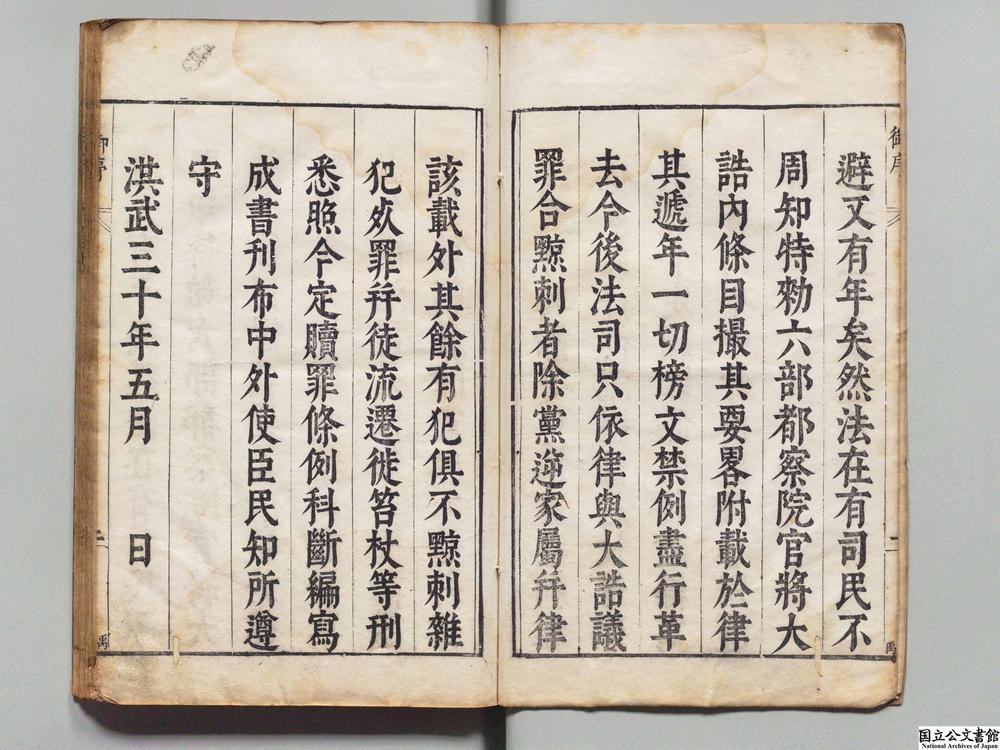 御序
避又有年矣然法在有司民不
周知特勑六部都察院官將大
誥內條目撮其要畧附載於律
其遞年一切榜文禁例盡行革
去今後法司只依律與大誥議
罪合黥刺者除黨逆家屬幷律
該載外其餘有犯俱不黥刺雜
犯𠛬罪幷徒流遷徙笞杖等刑
悉照今定贖罪條例科斷編寫
成書刊布中外使臣民知所遵
守
洪武三十年五月 日
御序
二
禹
国立公文書館
National Archives of Japan